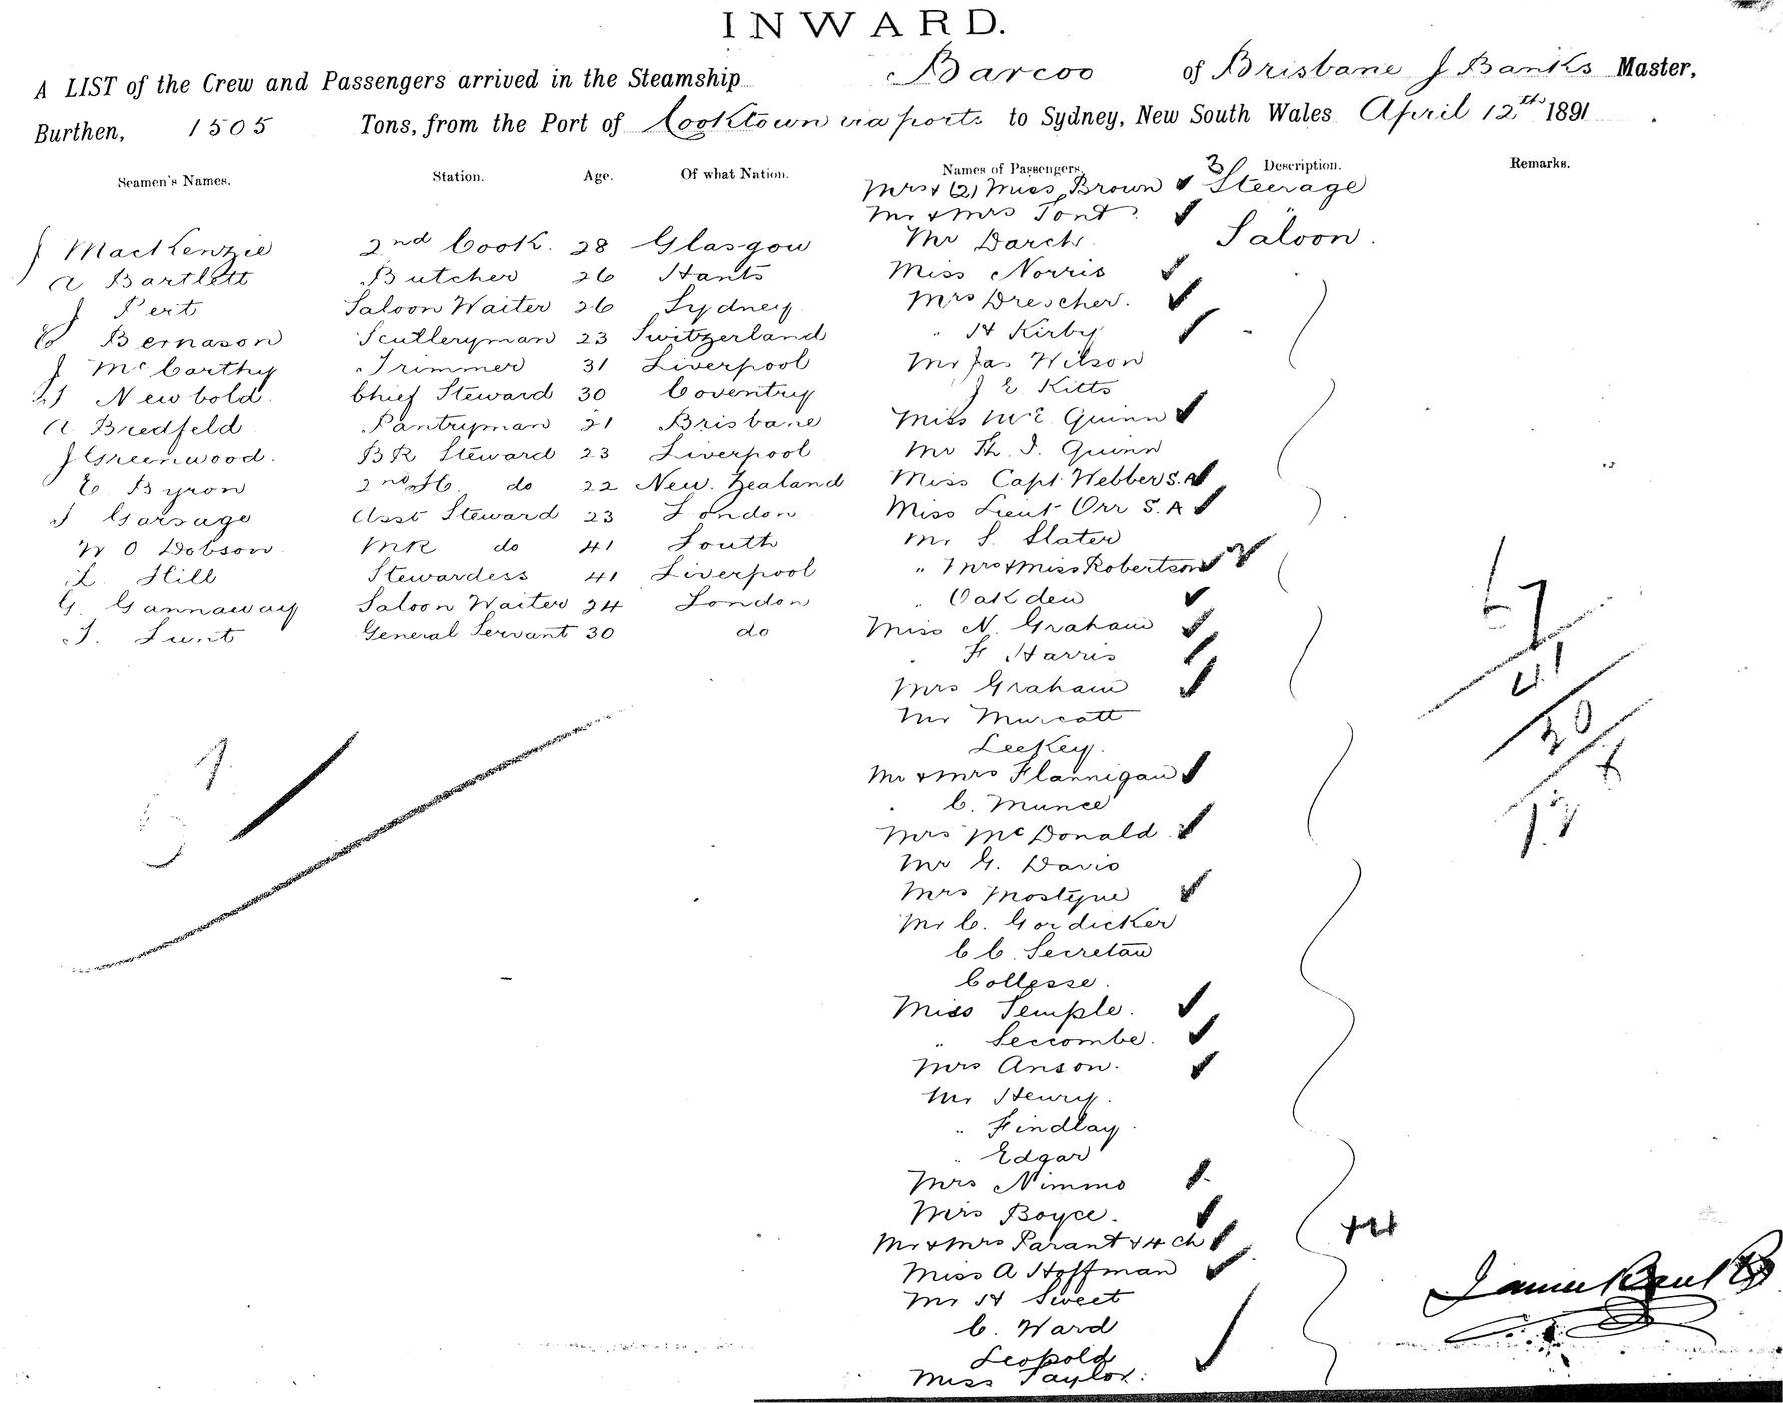 INWARD.
A LIST of the Crew and Passengers arrived in the Steamship Barcoo of Brisbane J Banks Master,
Burthen, 1505 Tons, from the Port of Cooktown via ports to Sydney, New South Wales April 12th 1891
Seamen's Names. Station. Age. Of what Nation. Names of Passengers. Description. Remarks.
Mrs & (2) Miss Brown 3 Steerage
Mr & Mrs Tont "
Mr Darch Saloon.
J MacKenzie 2nd Cook. 28 Glasgow
A Bartlett Butcher 26 Hants
J Pert Saloon Waiter 26 Sydney
E Bernason Scutleryman 23 Switzerland
J McCarthy Trimmer 31 Liverpool
Newbold Chief Steward 30 Coventry
A Bredfeld Pantryman 21 Brisbane
J Greenwood. BR Steward 23 Liverpool
E Byron 2nd St. do 22 New. Zealand
Garsage Asst Steward 23 London
W O Dobson MR do 41 Louth
L. Hill Stewardess 41 Liverpool
G. Gannaway Saloon Waiter 24 London
Lunt General Servant 30 do
Miss Norris
Mrs Drescher.
" H Kirby
Mr Jas Wilson
J E Kitts
Miss McE Quinn
Mr Th. J. Quinn
Miss Capt Webber S.A
Miss Lieut Orr S.A
Mr S. Slater
" Mrs & Miss Robertson 2
" Oakden
Miss N. Graham
" F Harris
Mrs Graham
Mr Murcott
LeeKey.
Mr & Mrs Flannigan
" C. Munce
Mrs McDonald
Mr G. Davis
Mrs Mostyne
Mr C. Gordicker
C C. Secretan
Collesse.
Miss Temple.
" Seccombe.
Mrs Anson.
Mr Henry.
" Findlay.
" Edgar
Mrs Nimmo
Mrs Boyce.
Mr & Mrs Parant & 4 ch +4
Miss A Hoffman
Mr H Sweet
C. Ward
Leopold
Miss Taylor.
67
41
20
James Banks